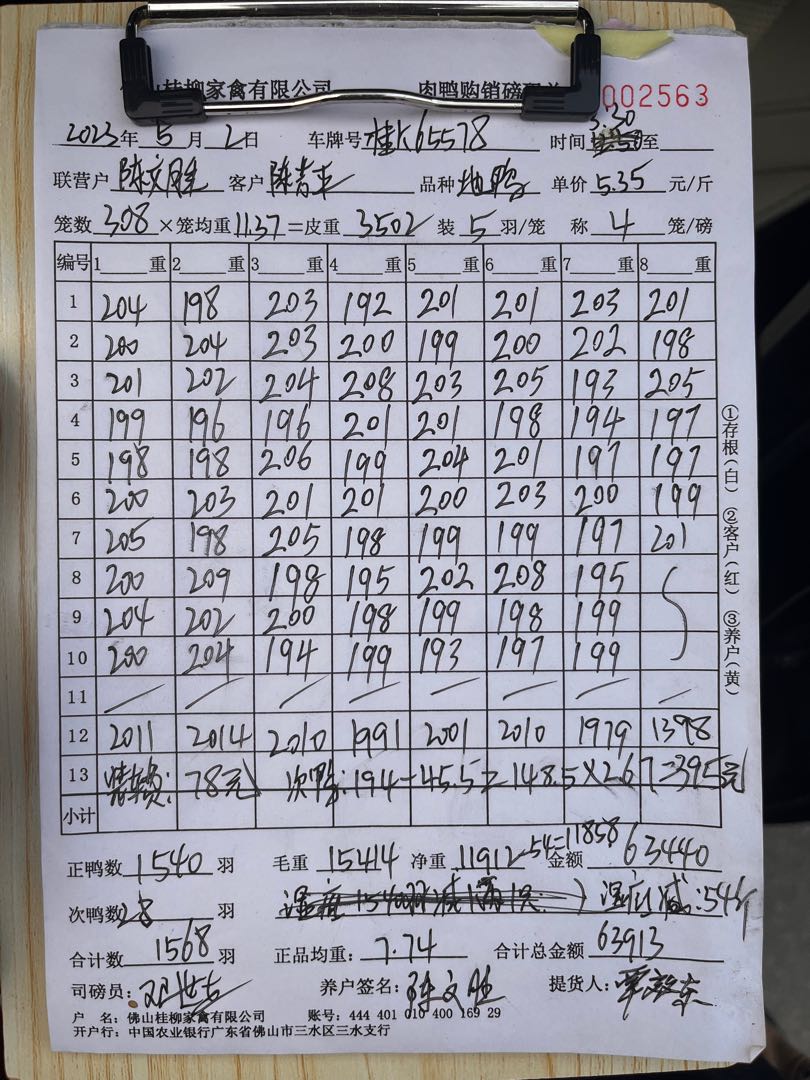 佛山桂柳家禽有限公司 肉鸭购销磅码单 0002563
2023年5月2日 车牌号 桂K65578 时间 3:30 至
联营户 陈文胜 客户 陈青平 品种 地鸭 单价 5.35 元/斤
笼数 308 ×笼均重 11.37 =皮重 3502 装 5 羽/笼 称 4 笼/磅
编号 1 重 2 重 3 重 4 重 5 重 6 重 7 重 8 重
1 204 198 203 192 201 201 203 201
2 200 204 203 200 199 200 202 198
3 201 202 204 208 203 205 193 205
4 199 196 196 201 201 198 194 197
5 198 198 206 199 204 201 197 197
6 200 203 201 201 200 203 200 199
7 205 198 205 198 199 199 197 201
8 200 209 198 195 202 208 195
9 204 202 200 198 199 198 199
10 200 204 194 199 193 197 199
11
12 2011 2014 2010 1991 2001 2010 1979 1398
13 78元 次鸭:194-45.5=148.5×2.67=395元
小计
正鸭数 1540 羽 毛重 15414 净重 11912-54=11858 金额 63440
次鸭数 28 羽 减:54
合计数 1568 羽 正品均重: 7.74 合计总金额 63913
司磅员: 养户签名: 陈文胜 提货人:
户 名:佛山桂柳家禽有限公司 账号:444 401 010 400 169 29
开户行:中国农业银行广东省佛山市三水区三水支行
①存根(白) ②客户(红) ③养户(黄)